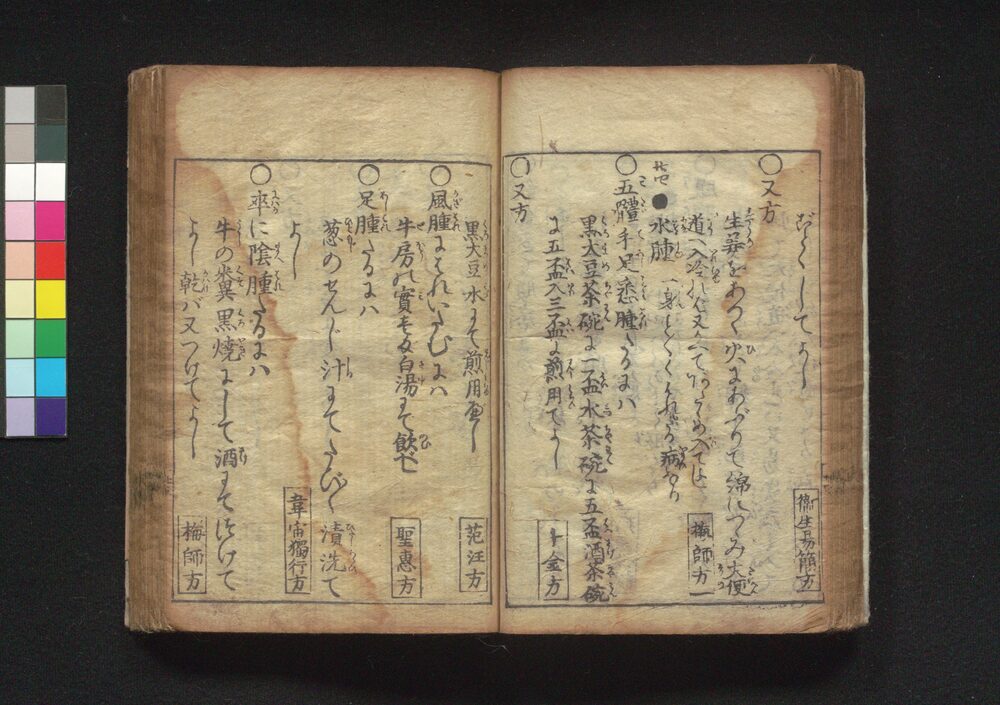 して よし
衛生易簡方
○又方
生姜をあつく火にあぶりて綿につゝみ大便
道へ入冷れば又かへてあたゝめ入てよし
梅師方
● 水腫 一身 病なり
○五體手足悉腫たるには
黒大豆茶碗に一盃水茶碗に五盃酒茶碗
に五盃入三盃に煎用てよし
千金方
○又方
黒大豆水にて煎用べし
范汪方
○風腫にはれいたむには
牛房の實 白湯にて飲べし
聖惠方
○足腫たるには
葱のせんじ汁にてたび〱漬洗て
よし
韋宙獨行方
○卒に陰腫たるには
牛の糞黒燒にして酒にてつけて
よし乾バ又つけてよし
梅師方